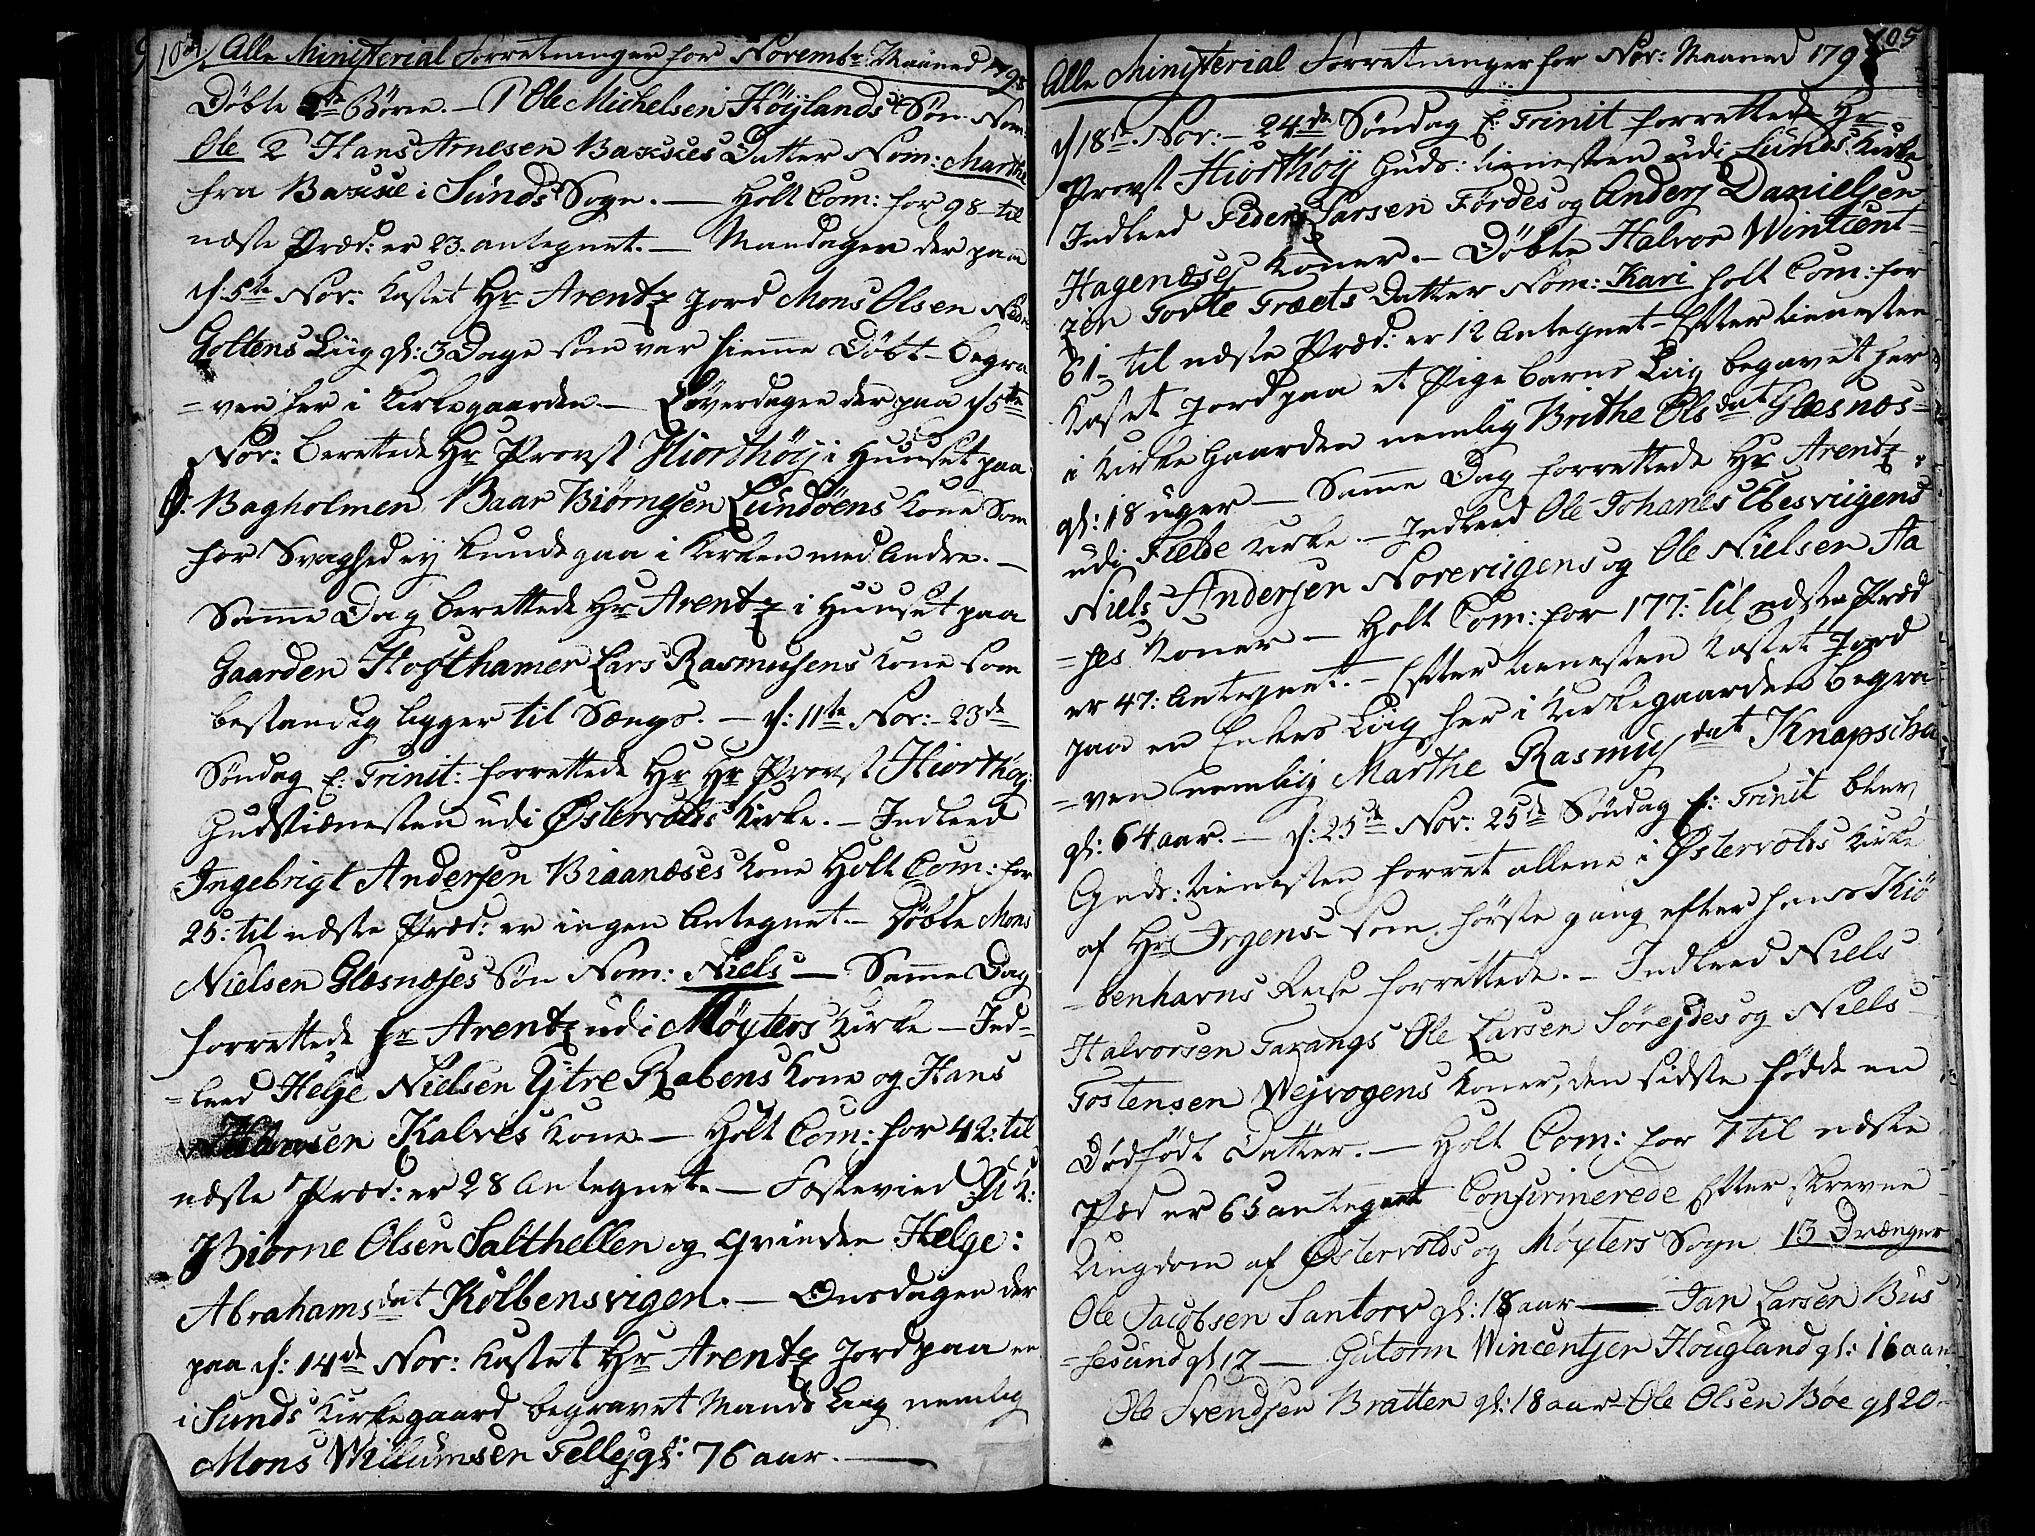 104 Alle Ministerial Forretninger for Novembr Maaned 1798
Døbte 2de Børn. – 1 Ole Michelsen Høylands Søn Nom:
Ole 2 Hans Arnesen Baxses Datter Nom: Marthe
fra Baxse i Sunds Sogn. — Holt Com: for 98 til
næste Præd: er 23. antegnet. — Mandagen der paa
d: 5te Nor: Kastet Hr Arentz Jord Mons Olsen Nedre
Goltens Liig gl: 3 Dage som var hiemme Døbt – begra
=ven her i Kirkegaarden — Løverdagen der paa d 5te
Nor: berettede Hr Provst Hiorthøy i Huuset paa
Bagholmen Baar Biørnsen Lundøens Kone som
for Svaghed ey kunde gaa i Kirken med Andre. —
Samme Dag berettede Hr Arentz i Huuset paa
Gaarden Hogsthamer Lars Rasmusens Kone som
bestandig ligger til Sængs. — d: 11te Nor: – 23de
Søndag E: Trinit: forrettede Hr Hr Provst Hiorthøy:
Gudstienesten udi Østervolds Kirke. — Indleed
Ingebrigt Andersen Biaanæses Kone Holt Com: for
25: til næste Præd: er ingen Antegnet – Døbte Mons
Nielsen Glæsnæses Søn Nom: Niels — Samme Dag
forrettede Hr Arentz udi Møxters Kirke — Ind=
=leed Helje Nielsen Ytre Rabens Kone og Hans
Halvorsen Kalves Kone — Holt Com: for 42: til
næste Præd: er 28 Antegnet. — Fæstevied
Biørne Olsen Salthellen og Qvinden Helge:
Abrahamsdat Kolbensvigen. — Onsdagen der
paa d: 14de Nor: Kastet Hr Arentz Jord paa en
i Sunds Kirkegaard begravet Mands Liig nemlig
Mons Willumsen Fellej gl: 76 aar. —
Alle Ministerial Forretninger for Nor: Maaned 1798 105
d 18de Nor: – 24de Søndag E: Trinit forrettede Hr
Provst Hiorthøy Guds: tienesten udi Sunds Kirke
Indleed Peder Larsen Førdes og Anders Danielsen
Hagenæses Koner. – Døbte Halvor Wintzent=
zen Tofte Træets Datter Nom: Kari holt Com: for
61 – til næste Præd: er 12 Antegnet – Efter tienesten
Kastet Jord paa et Pige barns Liig begravet her
i Kirke Gaarden nemlig Brithe Olsdat Glæsnæs=
gl: 18 uger — Samme Dag forrettede Hr Arentz
udi Fielde Kirke. — Indleed Ole Johanes Ebesviigens
Niels Andersen Noreviigens og Ole Nielsen Aa
=ses Koner — Holt Com: for 177: til næste Præd
er 47: Antegnet. — Efter tienesten Kastet Jord
paa en Enkes Liig her i Kirkegaarden begra
=ven nemlig Marthe Rasmusdat Knapscha
gl: 64 aar. — d: 25de Nor: 25de Søndag E: Trinit blev
Guds: tienesten forret allene i Østervolds Kirke
af Hr Irgens som første gang efter hans Kiø
=benhavns Reise forrettede. — Indleed Niels
Halvorsen Tarangs Ole Larsen Sørejdes og Niels
Tostensen Wejvogens Koner, den sidste fødde en
Dødfødt Datter. — Holt Com: for 7 til næste
Præd er 65 antegnet Confirmerede Efter skrevne
Ungdom af Østervolds og Møxters Sogn 13 Drænger
Ole Jacobsen Santorv gl: 18 aar — Jan Larsen Bus
=sesund gl 17 — Gutorm Wincentsen Hougland gl: 16 aar
Ole Svendsen Bratten gl: 18 aar – Ole Olsen Bøe gl 20